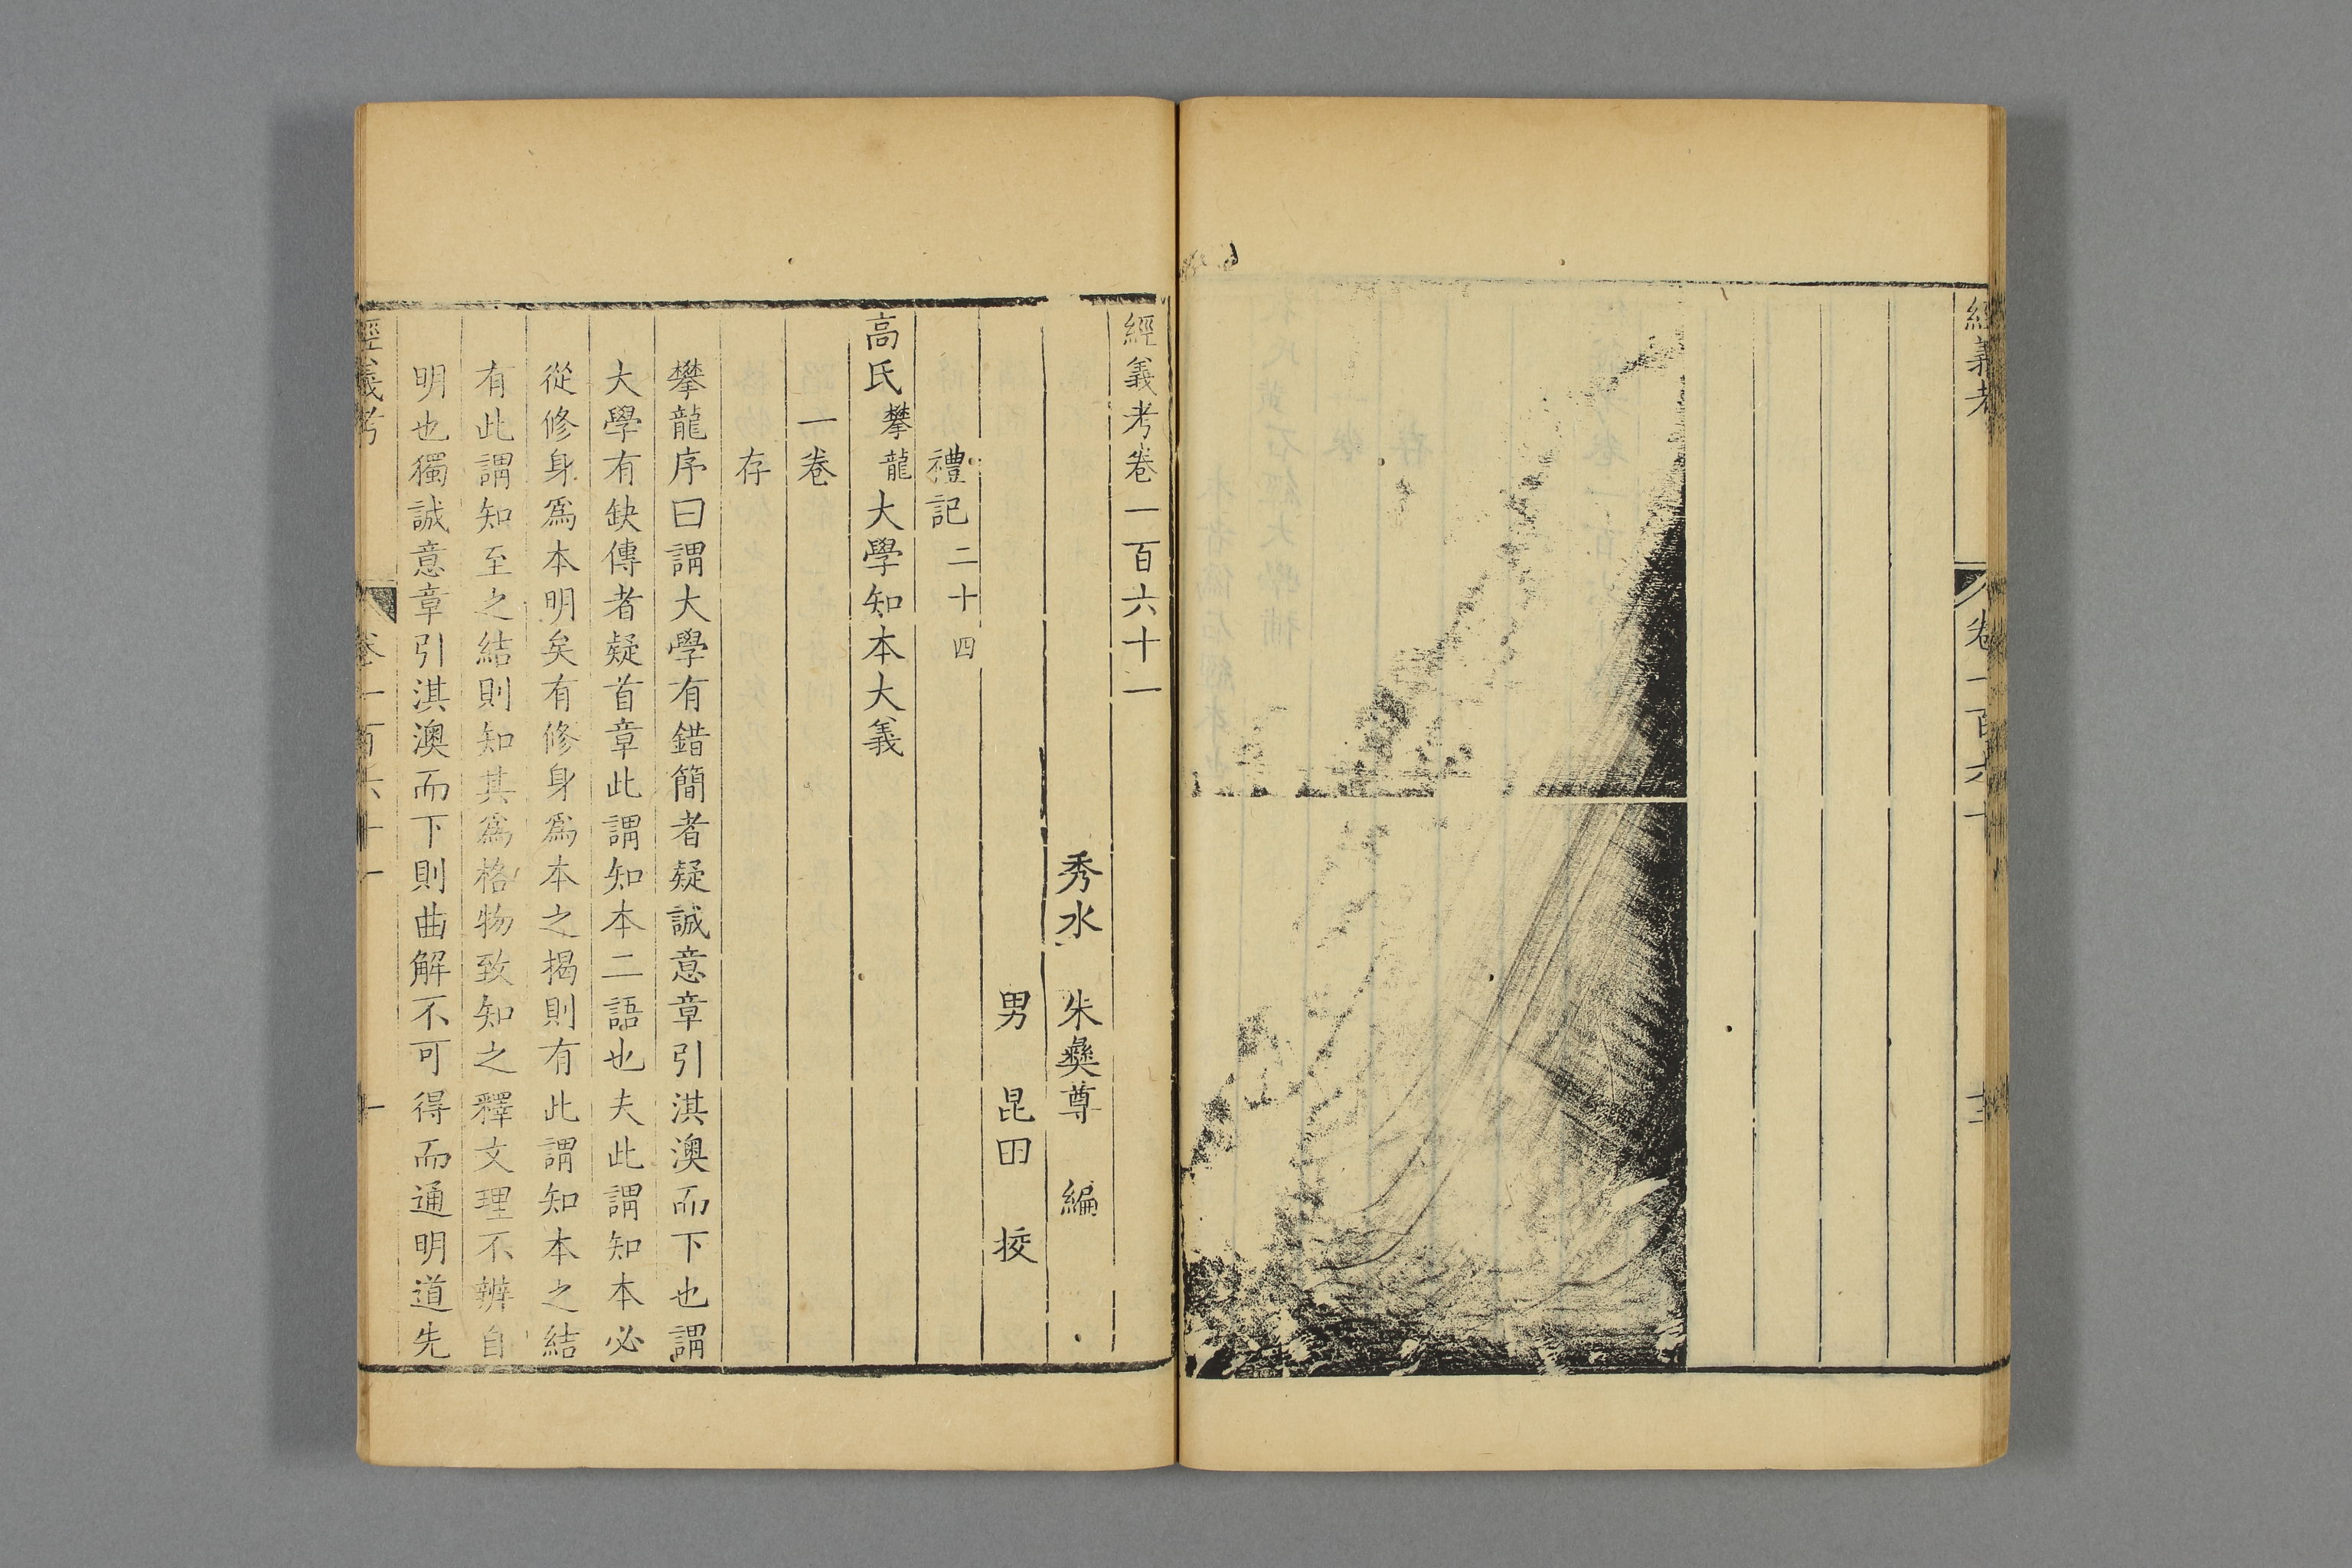 經義考
卷一百六十
經義考卷一百六十一
秀水 朱彝尊 編
男 昆田 挍
禮記二十四
高氏攀龍大學知本大義
一卷
存
攀龍序曰謂大學有錯簡者疑誠意章引淇澳而下也謂
大學有缺傳者疑首章此謂知本二語也夫此謂知本必
從修身爲本明矣有修身爲本之揭則有此謂知本之結
有此謂知至之結則知其爲格物致知之釋文理不辨自
明也獨誠意章引淇澳而下則曲解不可得而通明道先
經義考
卷一百六十一
一